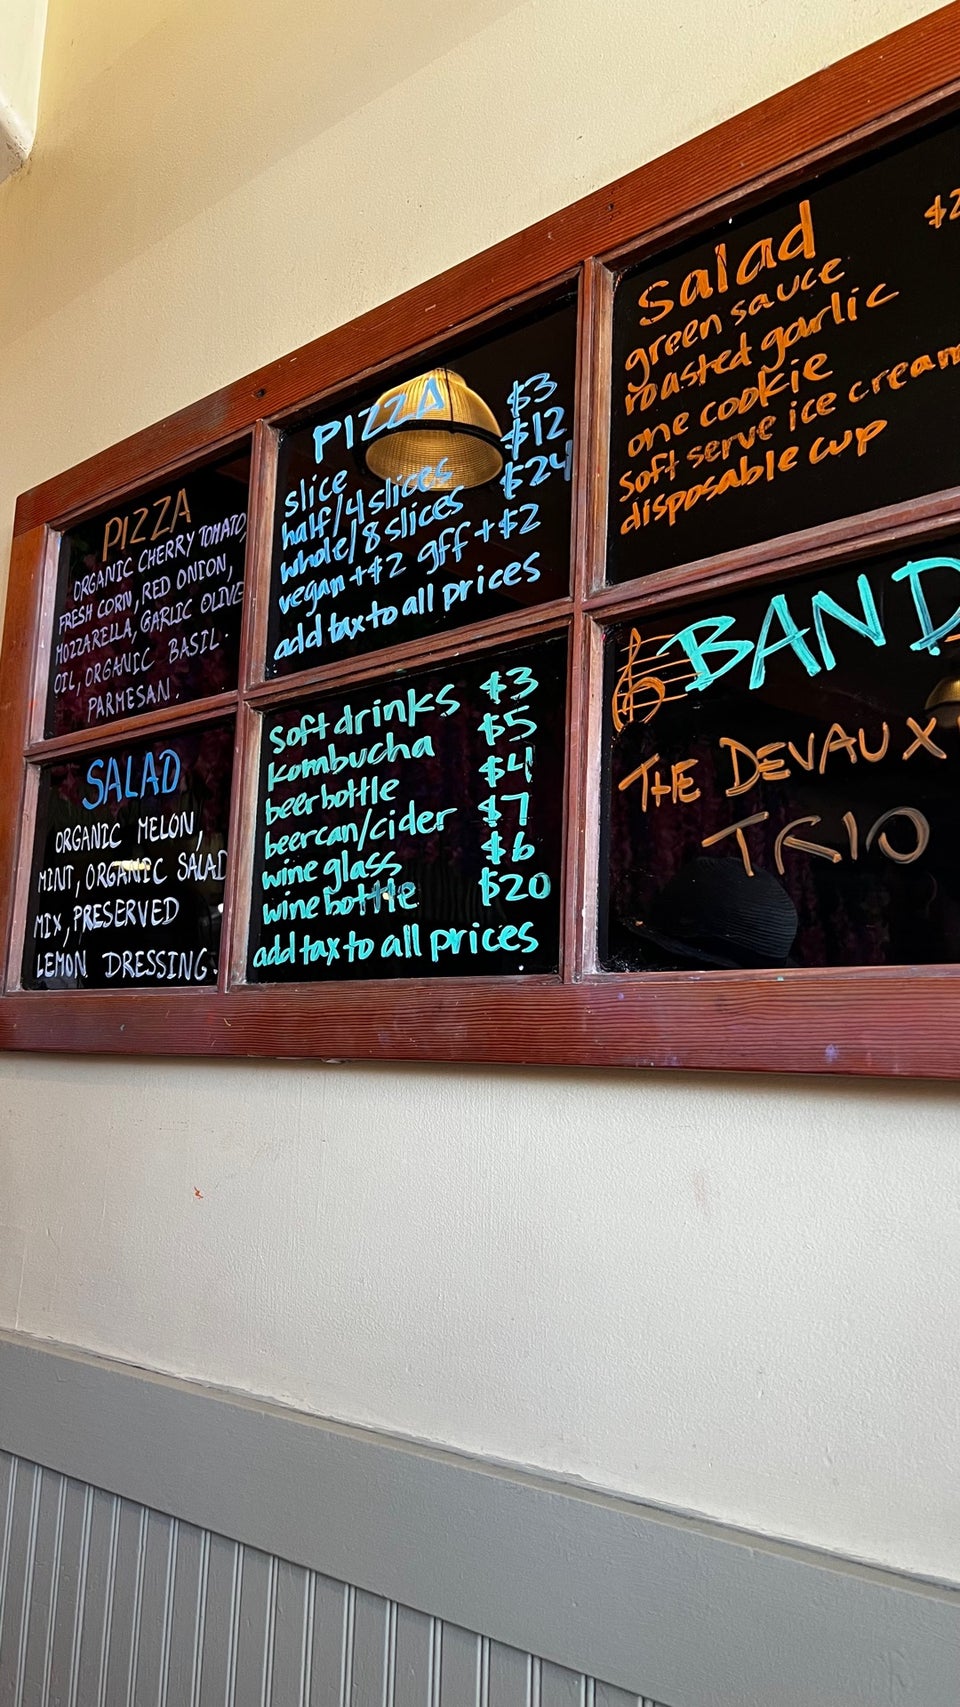 PIZZA
ORGANIC CHERRY TOMATO,
FRESH CORN, RED ONION,
MOZZARELLA, GARLIC OLIVE
OIL, ORGANIC BASIL.
PARMESAN.
SALAD
ORGANIC MELON,
MINT, ORGANIC SALAD
MIX, PRESERVED
LEMON DRESSING.
PIZZA
slice $3
half/4 slices $12
whole/8 slices $24
vegan +$2 gff +$2
add tax to all prices
soft drinks $3
kombucha $5
beer bottle $4
beer can/cider $7
wine glass $6
wine bottle $20
add tax to all prices
Salad
green sauce
roasted garlic
one cookie
soft serve ice cream
disposable cup
BAND
THE DEVAUX
TRIO